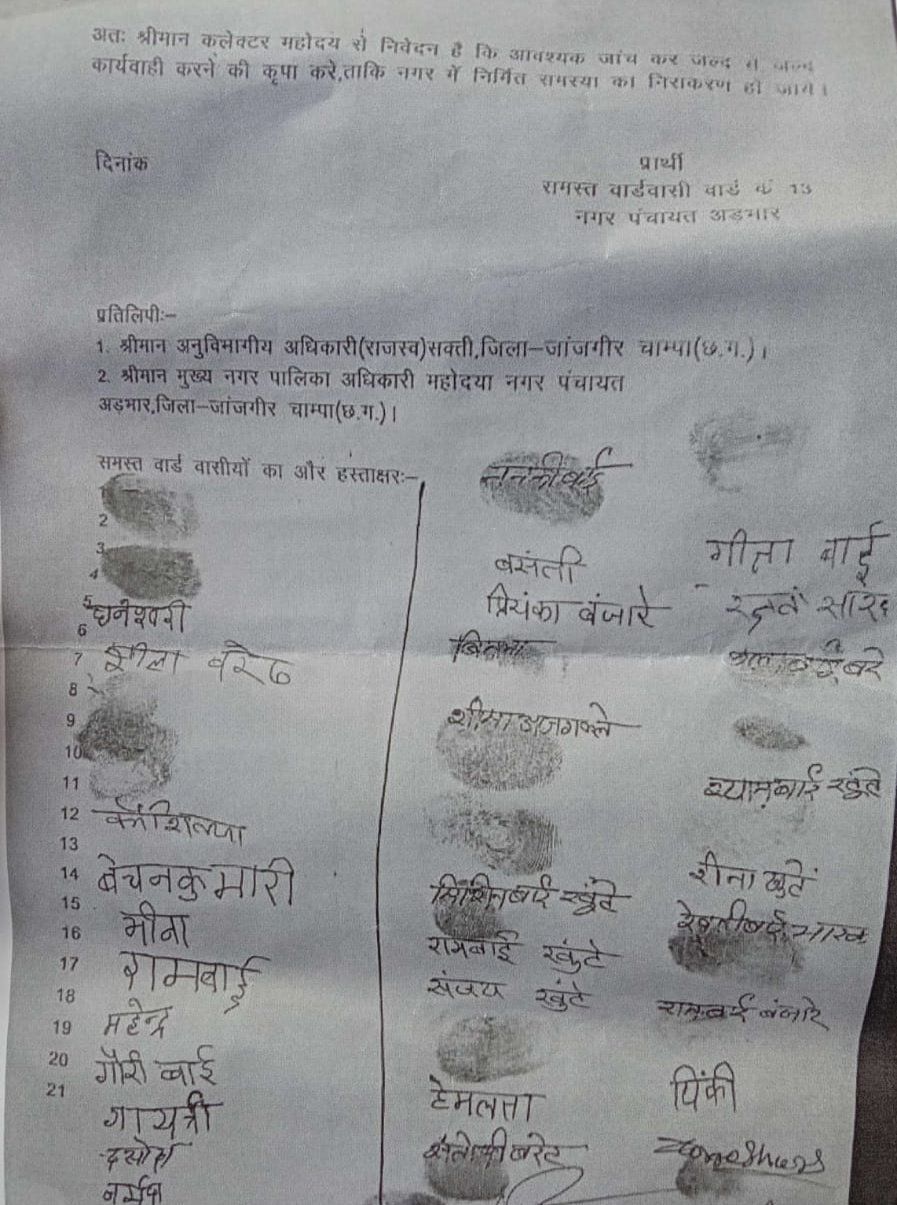 अतः श्रीमान कलेक्टर महोदय से निवेदन है कि आवश्यक जांच कर जल्द से जल्द
कार्यवाही करने की कृपा करे,ताकि नगर में निर्मित समस्या का निराकरण हो जाये।
दिनांक
प्रार्थी
समस्त वार्डवासी वार्ड कं 13
नगर पंचायत अडभार
प्रतिलिपीः–
1. श्रीमान अनुविभागीय अधिकारी(राजस्व)सक्ती,जिला–जांजगीर चाम्पा(छ.ग.)।
2. श्रीमान मुख्य नगर पालिका अधिकारी महोदया नगर पंचायत
अड़भार,जिला–जांजगीर चाम्पा(छ.ग.)।
समस्त वार्ड वासीयों का और हस्ताक्षरः–
1
2
3
4
5
6
धनेश्वरी
7
8
9
10
11
12
13
14
बेचनकुमारी
15
16
मीना
17
रामबाई
18
19
महेन्द्र
20
गौरी बाई
21
गायत्री
बसंती
प्रियंका बंजारे
रामबाई खुंटे
संजय खुंटे
हेमलता
गीता बाई
श्यामबाई खुंटे
रीना खुटें
रामबाई बंजारे
पिंकी